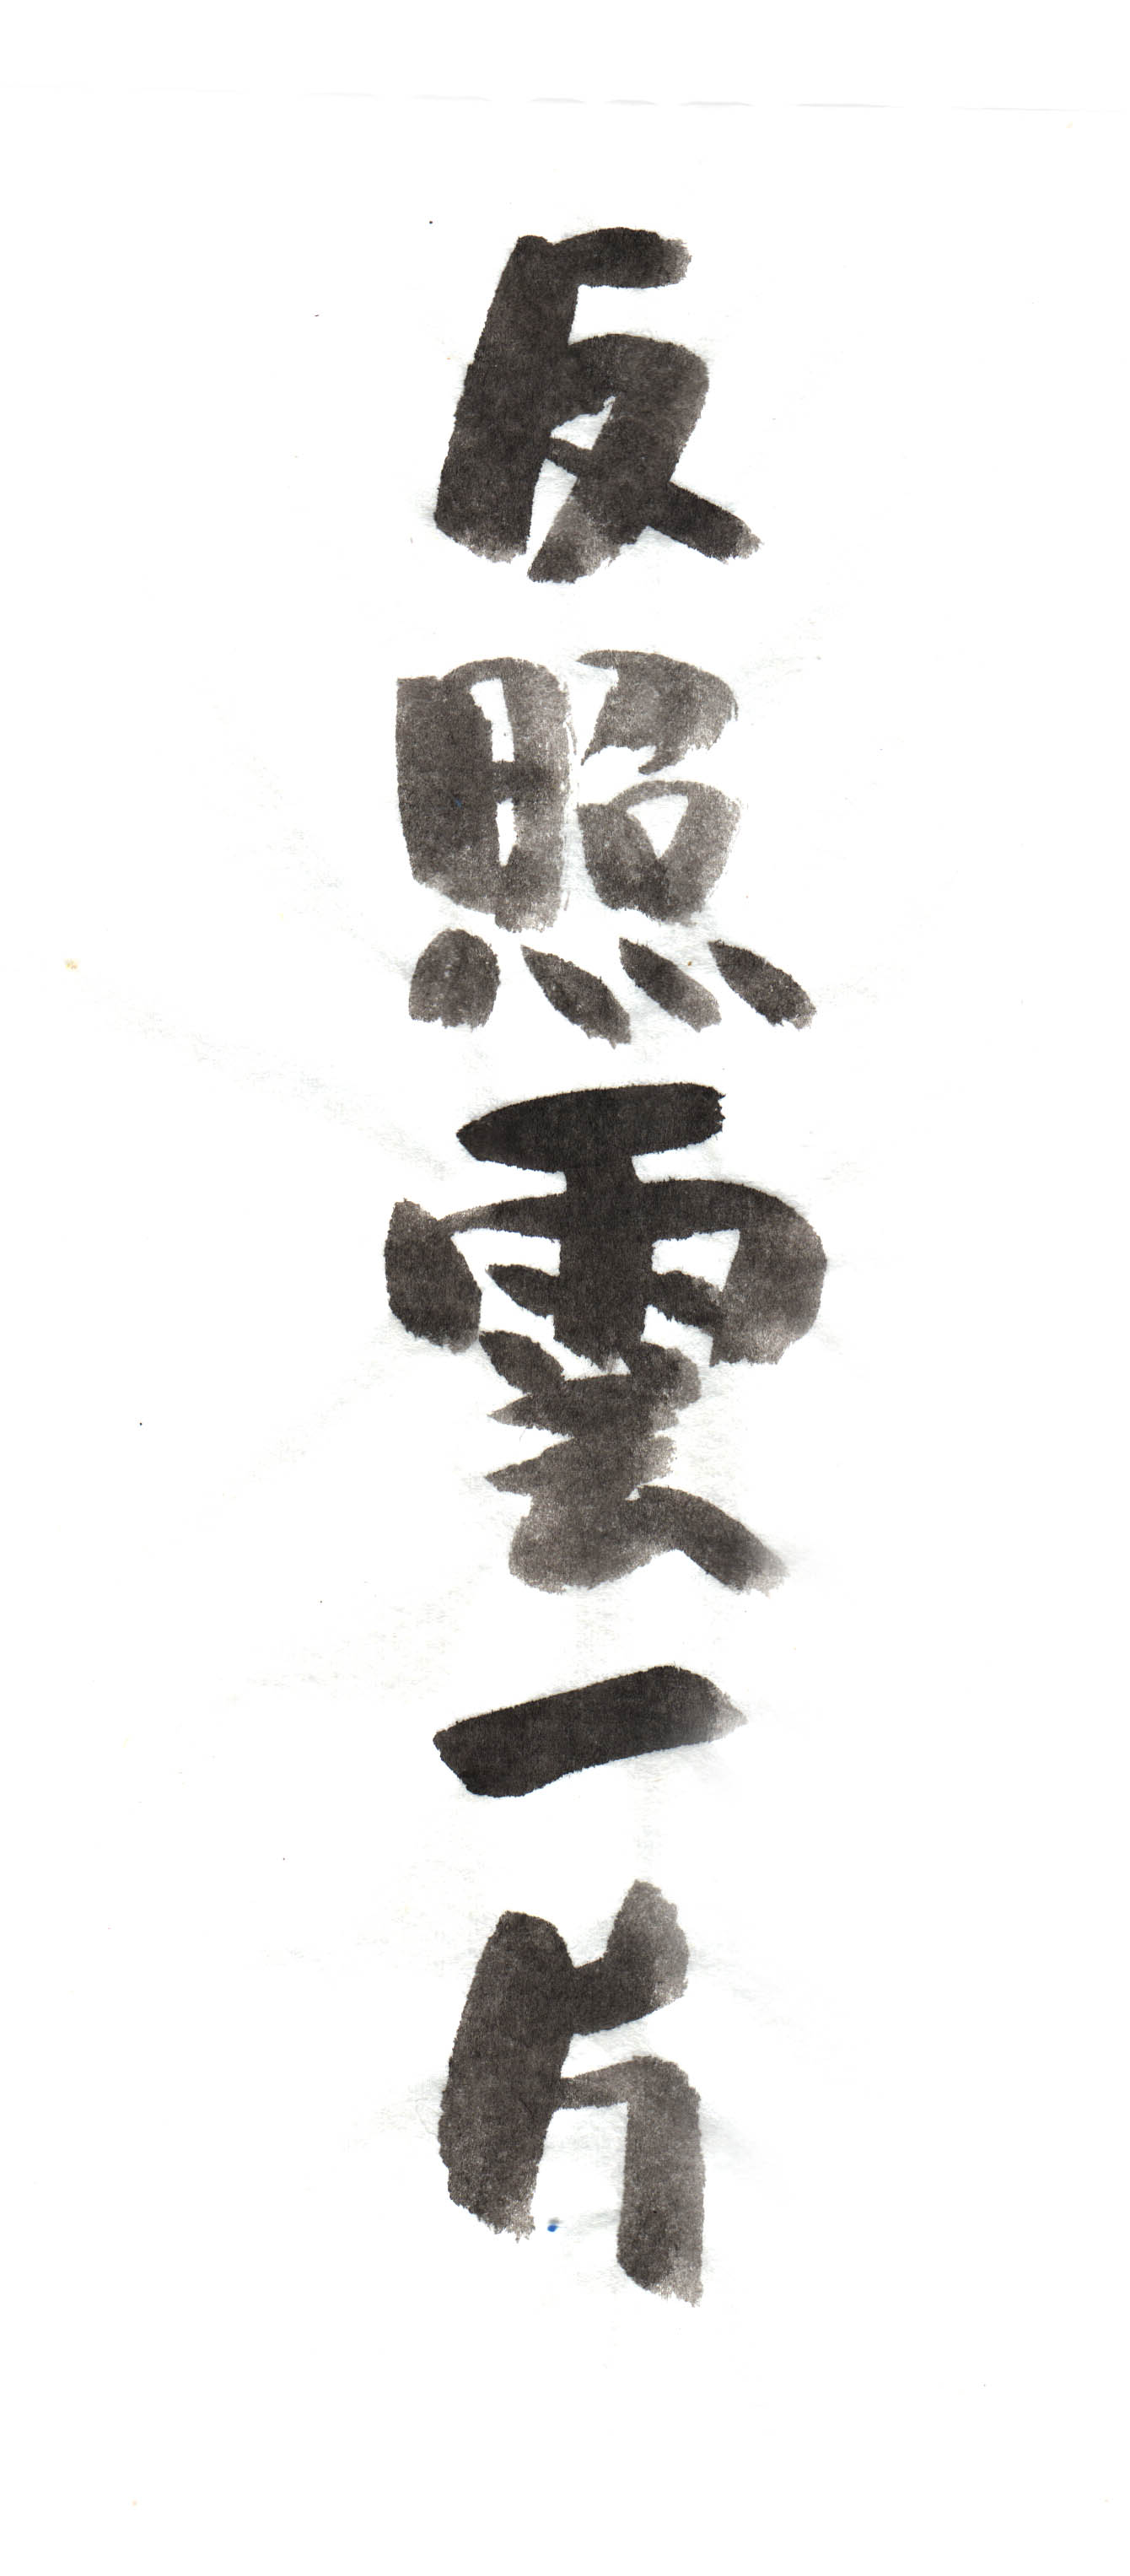 反照雲一片